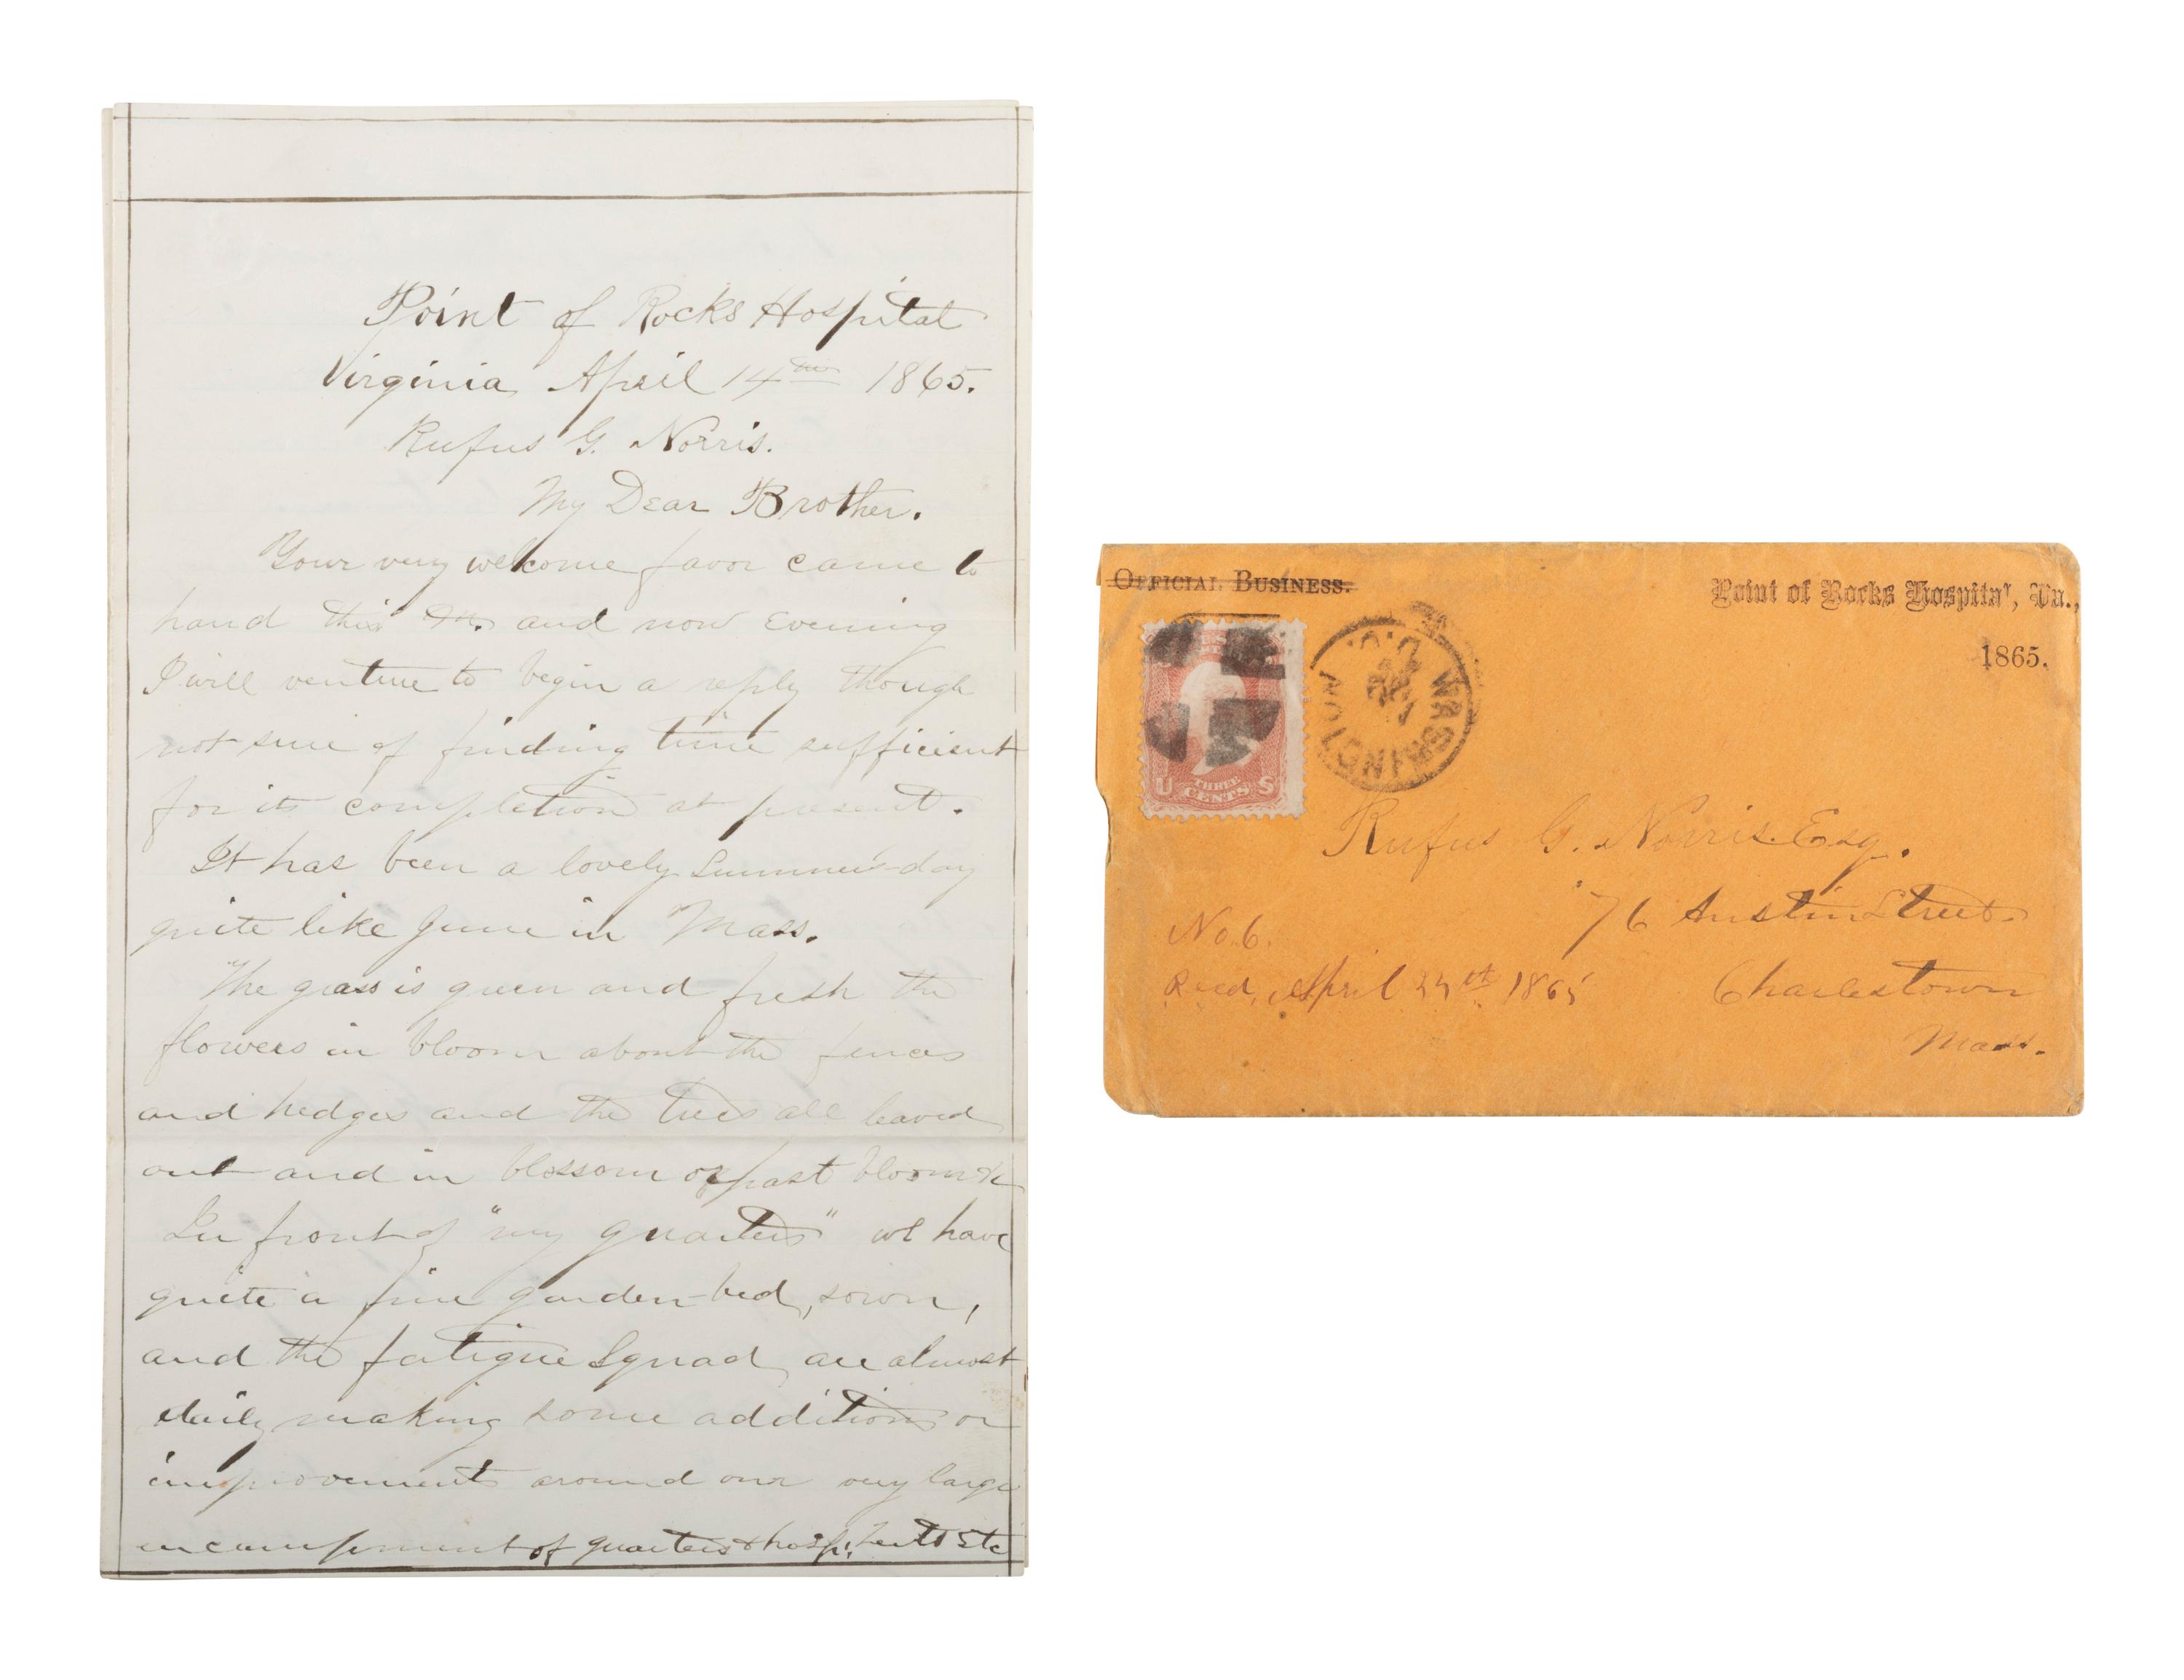 Point of Rocks Hospital
Virginia April 14th 1865.
Rufus G. Norris.
My Dear Brother.
Your very welcome favor came to
hand this and now Evening
I will venture to begin a reply though
not sure of finding time sufficient
for its completion at present.
It has been a lovely Summer-day
quite like June in Mass.
The grass is green and fresh the
flowers in bloom about the fences
and hedges and the trees all leaved
out and in blossom or past bloom &c
In front of "my quarters" we have
quite a fine garden-bed, sown,
and the fatigue Squad are almost
daily making some additions or
improvements around our very large
encampment of quarters & hospl. tents Etc
OFFICIAL BUSINESS.
Point of Rocks Hospital, Va.,
1865.
WASHINGTON D.C.
U THREE CENTS S
Rufus G. Norris. Esq.
76 Austin Street
Charlestown
Mass.
No. 6.
Recd, April 1865